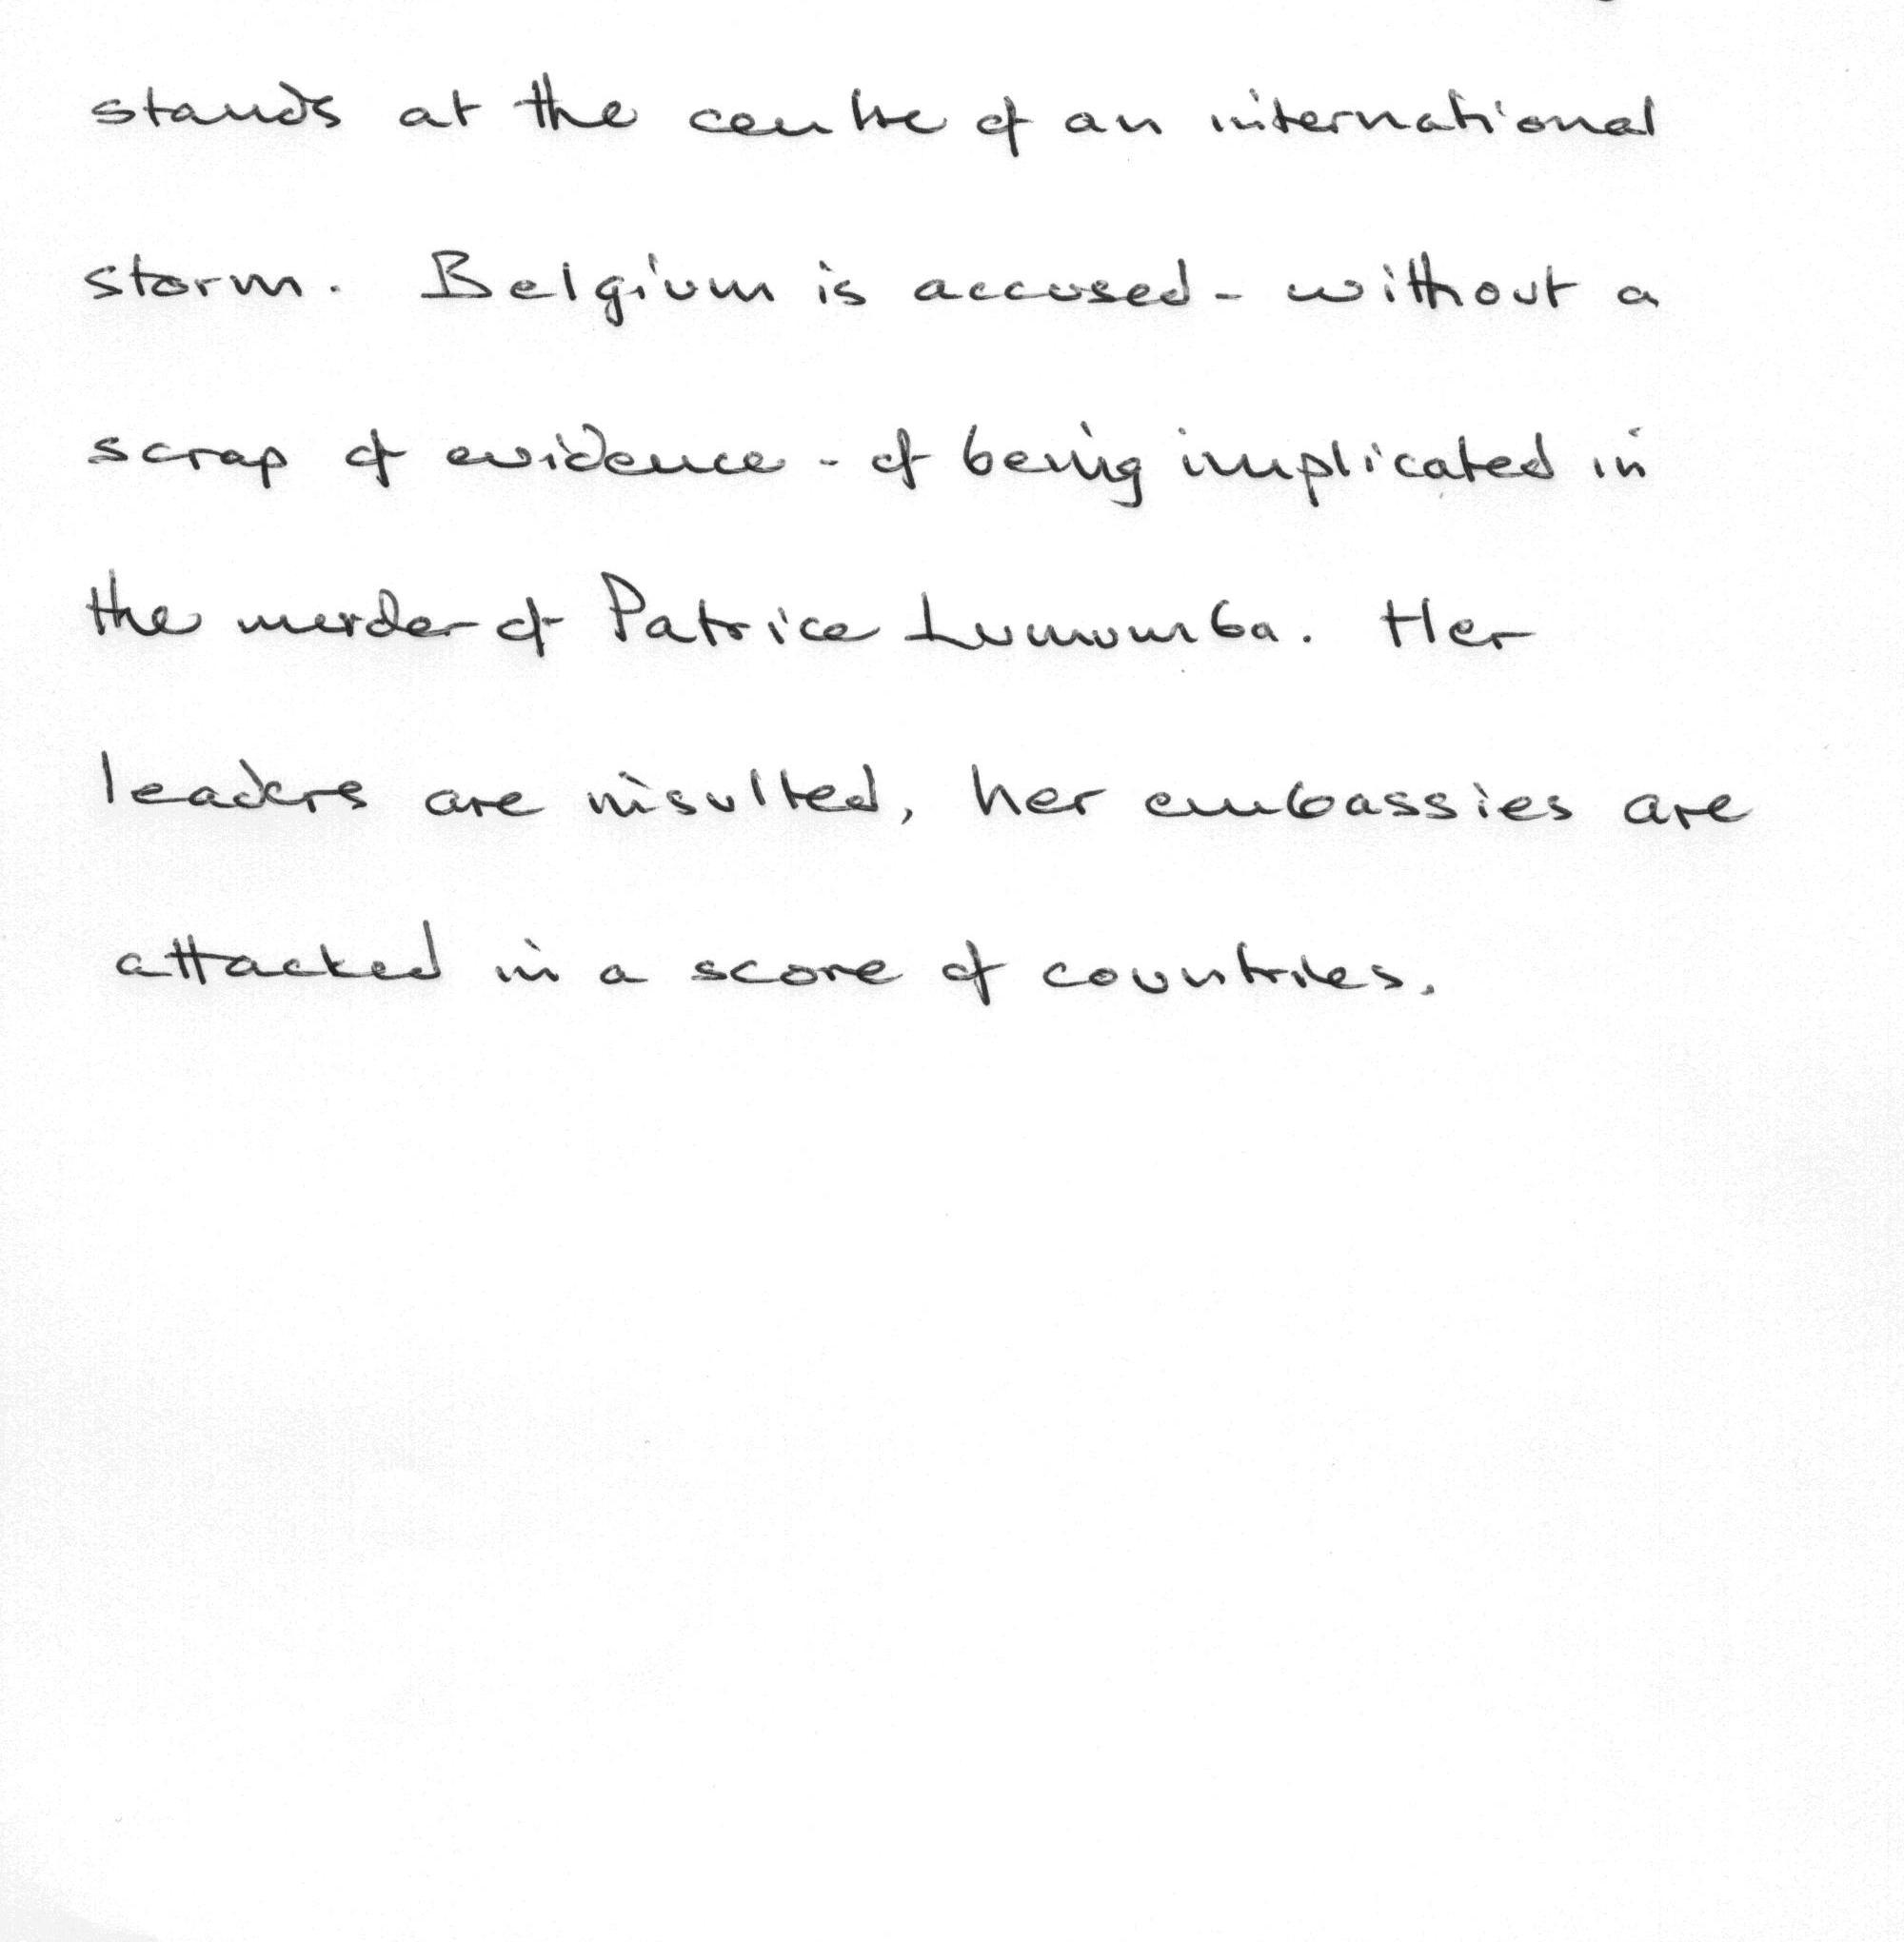 stands at the centre of an international
storm. Belgium is accused - without a
scrap of evidence - of being implicated in
the murder of Patrice Lumumba. Her
leaders are insulted, her embassies are
attacked in a score of countries.